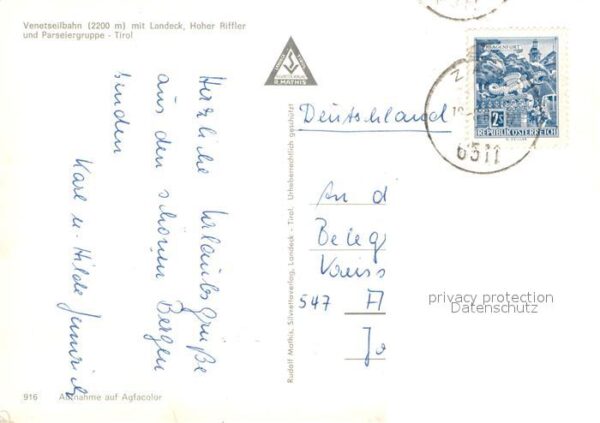 Venetseilbahn (2200 m) mit Landeck, Hoher Riffler
und Parseiergruppe - Tirol
R. MATHIS
Herzliche Urlaubsgrüße
aus den schönen Bergen
senden
Karl u. Hilde
916 Aufnahme auf Agfacolor
Rudolf Mathis, Silvrettaverlag, Landeck - Tirol. Urheberrechtlich geschützt
KLAGENFURT
2S
REPUBLIK ÖSTERREICH
Z
6511
Deutschland
An d
Beleg
547 A
Jo
privacy protection
Datenschutz